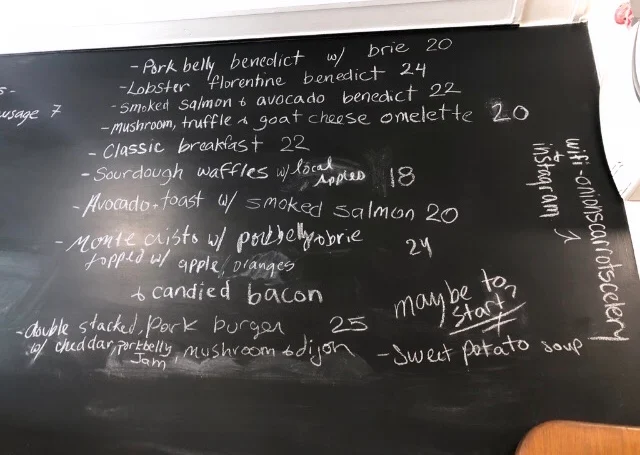 s-
usage 7
- Pork belly benedict w/ brie 20
- Lobster florentine benedict 24
- smoked salmon & avocado benedict 22
- mushroom, truffle & goat cheese omelette 20
- Classic breakfast 22
- Sourdough waffles w/ local apples 18
- Avocado toast w/ smoked salmon 20
- Monte cristo w/ porkbelly & brie 24
topped w/ apple, oranges
& candied bacon
- double stacked, Pork burger 25
w/ cheddar, porkbelly Jam, mushroom & dijon
maybe to
start
- Sweet potato soup
wifi - onionscarrotscelery
+ instagram